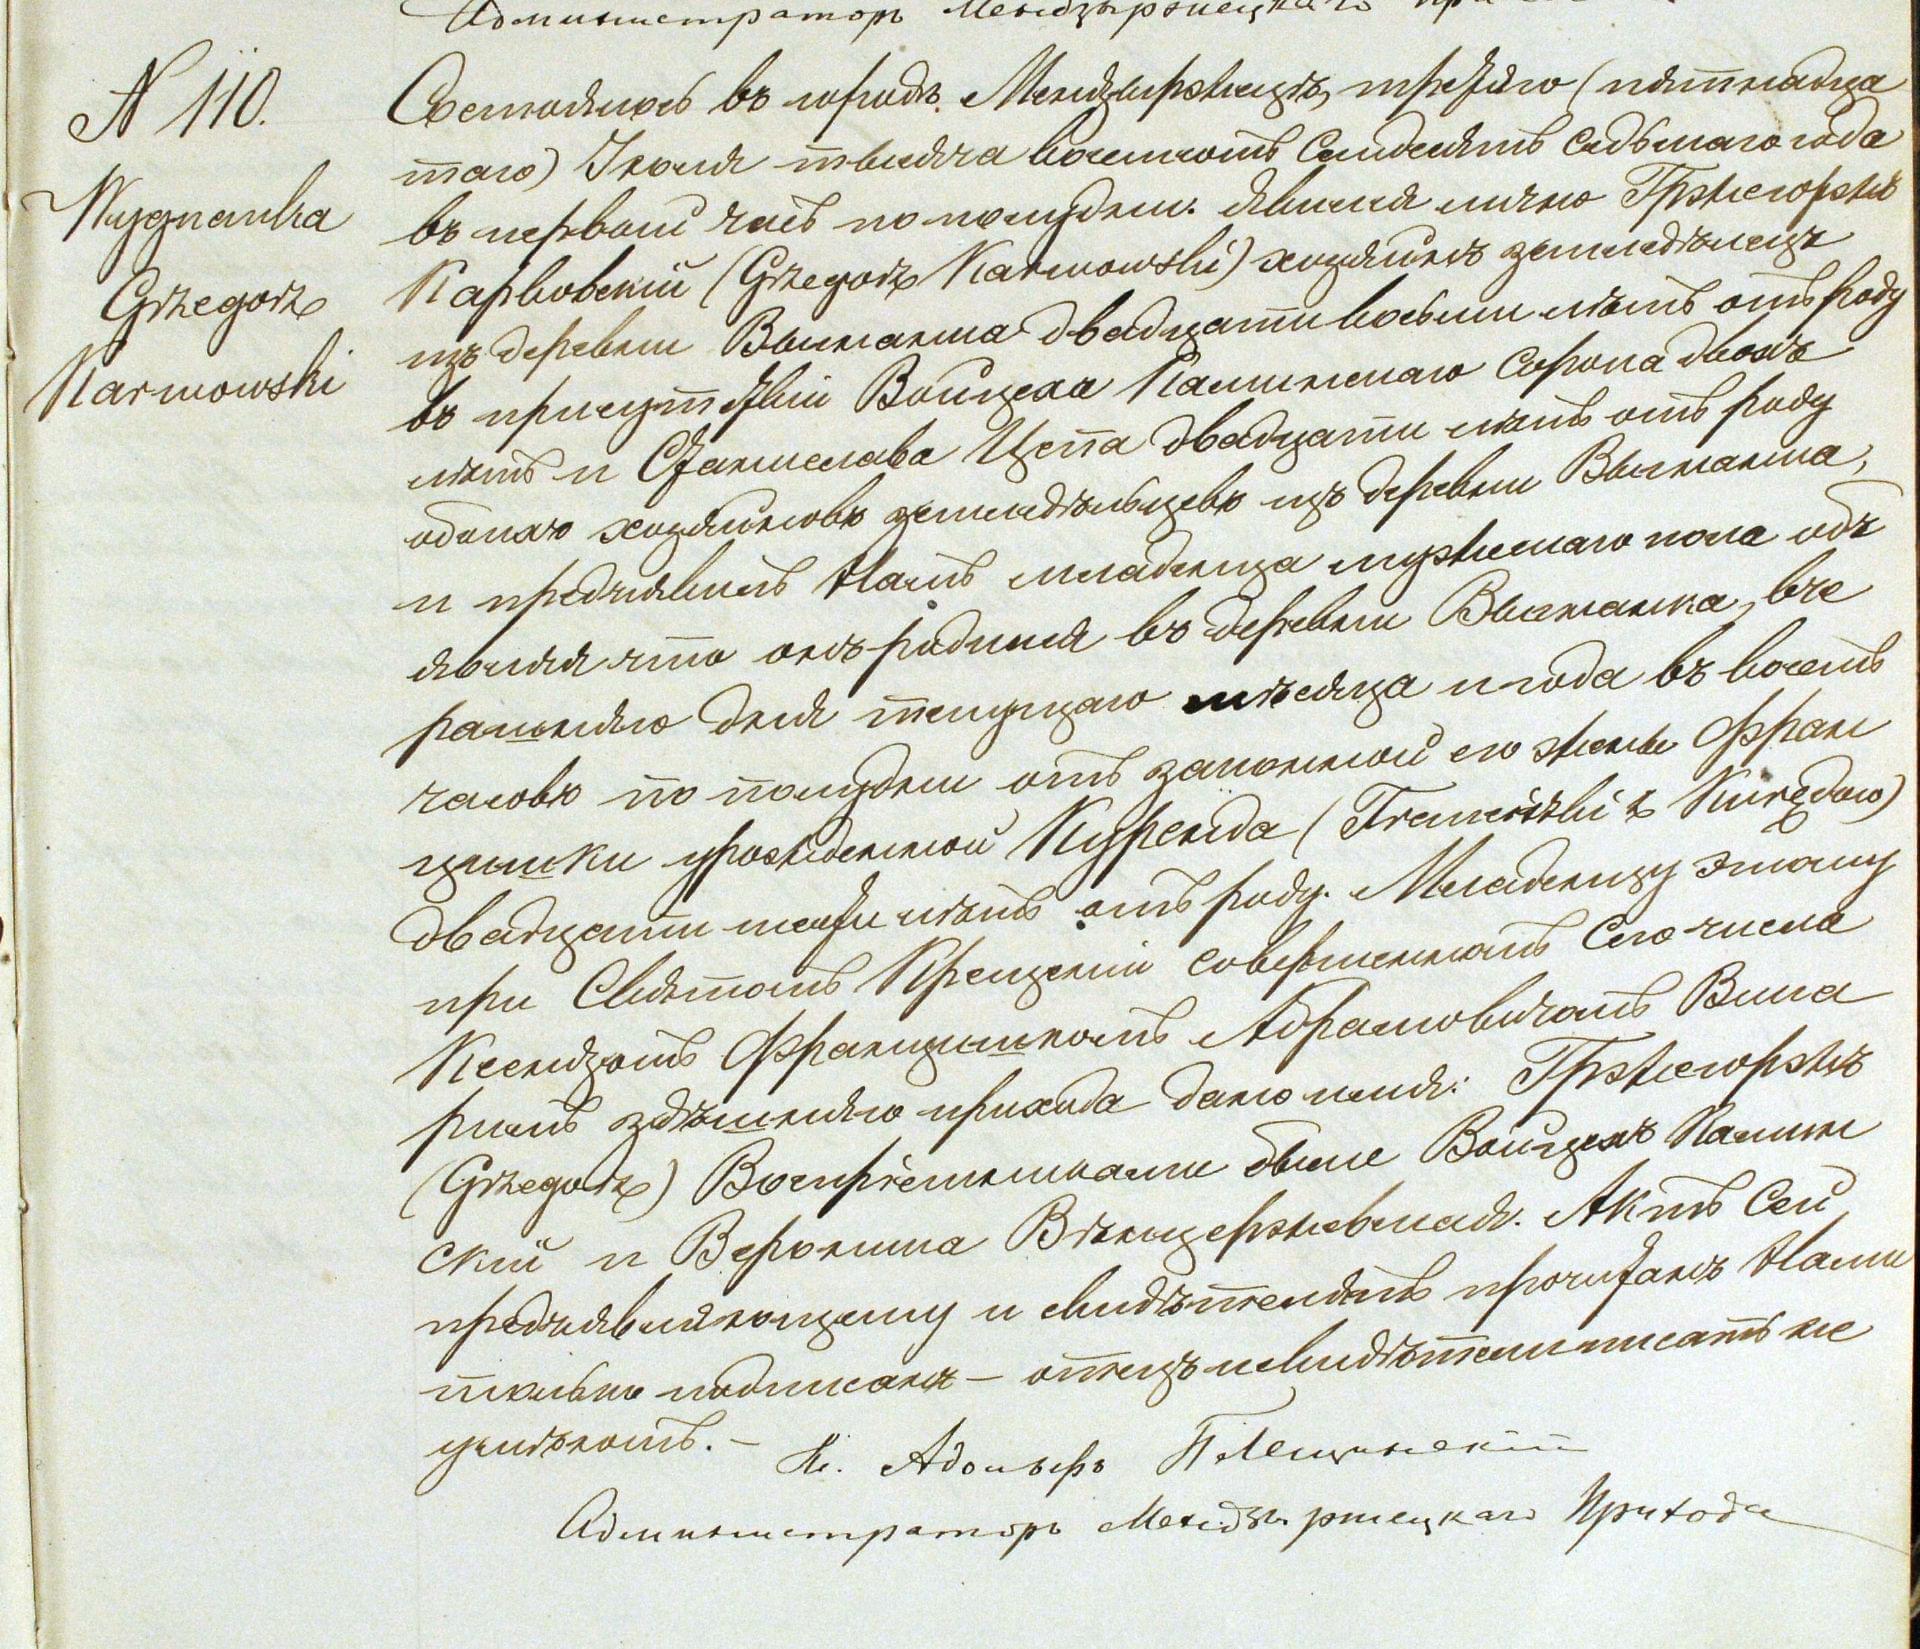 Администраторъ Мендзыржецкаго
N 110.
Wyznanka
Grzegorz
Karwowski
Состоялось въ городѣ Мендзыржецѣ, третьяго (пятнадца
таго) Іюля тысяча восемьсотъ семдесятъ седьмаго года
въ первый часъ по полудни. Явился лично Гржегоржъ
Карвовскій (Grzegorz Karwowski) хозяинъ земледѣлецъ
изъ деревни Вызнанка двадцати восьми лѣтъ отъ роду
въ присутствіи Войцеха Калинскаго сорока двохъ
лѣтъ и Станислава Цепа двадцати лѣтъ отъ роду
обоихъ хозяиновъ земледѣльцевъ изъ деревни Вызнанка,
и предъявилъ Намъ младенца мужескаго пола объ
являя что онъ родился въ деревни Вызнанка, вче
рашняго дня текущаго мѣсяца и года въ восемь
часовъ по полудни отъ законной его жены Фран
цишки урожденной Куренда (Franciszki z Kurędów)
двадцати лѣтъ отъ роду. Младенцу этому
при Святомъ Крещеніи совершенномъ сего числа
Ксендзомъ Францишкомъ Абрамовичомъ Вика
римъ здѣшняго прихода дано имя: Гржегоржъ
(Grzegorz) Воспріемниками были Войцехъ Калин
скій и Вероника Венцержевская. Актъ сей
предъявляющему и свидѣтелямъ прочитанъ Нами
только подписанъ – отецъ и свидѣтели писать не
умѣютъ. –
Кс. Адольфъ Плещинскій
Администраторъ Мендзыржецкаго Прихода